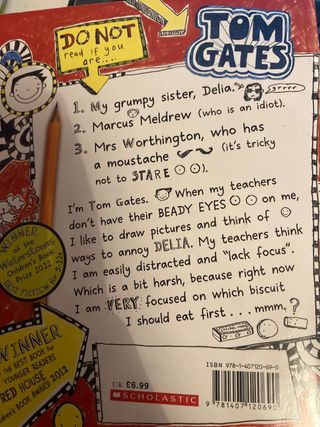 TOM
GATES
DO NOT
read if you
are....
1. My grumpy sister, Delia.
2. Marcus Meldrew (who is an idiot).
3. Mrs Worthington, who has
a moustache (it's tricky
not to STARE).
I'm Tom Gates. When my teachers
don't have their BEADY EYES on me,
I like to draw pictures and think of
ways to annoy DELIA. My teachers think
I am easily distracted and "lack focus".
Which is a bit harsh, because right now
I am VERY focused on which biscuit
I should eat first...mmm.
?
WINNER
of the
Waterstones
Children's Book
Prize 2012
BEST FICTION for 5-12s
WINNER
THE BEST BOOK FOR
YOUNGER READERS
RED HOUSE
Children's BOOK AWARD 2012
UK £6.99
SCHOLASTIC
ISBN 978-1-407120-69-0
9 781407 120690